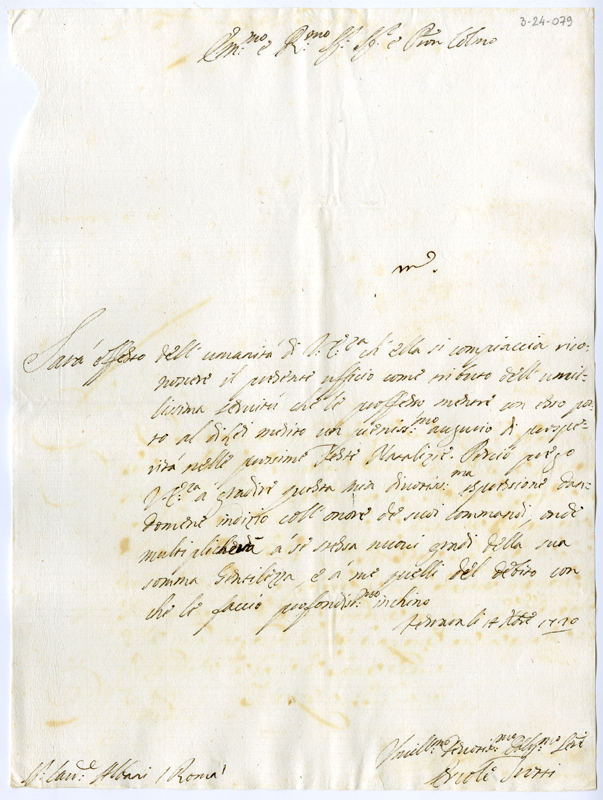 3-24-079
Em.mo e R.mo Sig.r Sig.r e Pron Colmo
Sarà effetto dell'umanità di V. Em.za ch'ella si compiaccia rico-
noscere il presente ufficio come tributo dell'umil-
lissima servitù che le professo mentre con esso por-
to al di lei merito un riveren.mo augurio di prospe-
rità nelle prossime Feste Natalizie. Perciò prego
V. Em.za à gradire questa mia divotis.ma espressione dan-
domene indizio coll'onore de suoi commandi, onde
multiplicherà à se stessa nuovi gradi della sua
somma Gentilezza, e à me quelli del debito con
che le faccio profondis.mo inchino
Ferrara li 17 Xbre 1720
Umill.mo Devotis.mo Oblig.mo Ser.
Ercole
S.r Car.le Albani / Roma